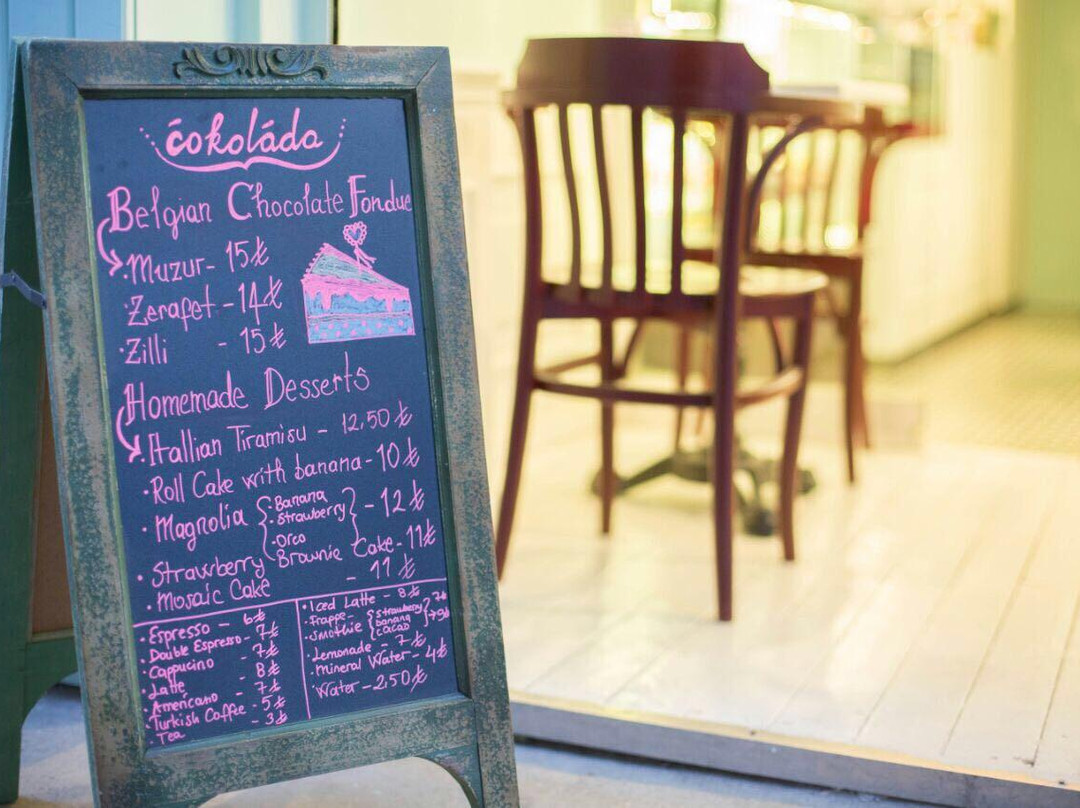 čokoláda
Belgian Chocolate Fondue
·Muzur- 15₺
·Zerafet -14₺
·Zilli - 15₺
Homemade Desserts
·Itallian Tiramisu - 12,50₺
·Roll Cake with banana-10₺
·Magnolia {·Banana ·Strawberry ·Oreo} - 12₺
·Strawberry Brownie Cake-11₺
·Mosaic Cake - 11₺
·Espresso - 6₺
·Double Espresso- 7₺
·Cappucino - 7₺
·Latte - 8₺
·Americano - 7₺
·Turkish Coffee - 5₺
·Tea - 3₺
·Iced Latte - 8₺
·Frappe-
·Smothie {strawberry banana cacao}
·Lemonade - 7₺
·Mineral Water- 4₺
·Water -2,50₺